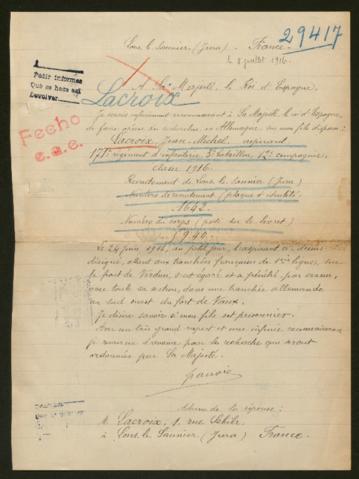 29417
Lons-le-Saunier (Jura) - France
le 8 juillet 1916.
Pedir informes
Que se hace así
Devolver
A Sa Majesté, le Roi d'Espagne,
Lacroix
Je serais infiniment reconnaissant à Sa Majesté le roi d'Espagne,
de faire des recherches en Allemagne sur mon fils disparu:
Fecho
e.a.e.
Lacroix Jean-Michel, aspirant
171e régiment d'infanterie 3e bataillon, 12e compagnie,
classe 1916.
Recrutement de Lons-le-Saunier (Jura)
Numéro de recrutement (plaque d'identité)
1642
Numéro du corps (porté sur le livret)
7940
Le 24 juin 1916, au petit jour, l'aspirant ci-dessus
désigné, allant aux tranchées françaises de 1ère ligne, sur
le fort de Verdun, s'est égaré et a pénétré par erreur,
avec toute sa section, dans une tranchée allemande
au sud ouest du fort de Vaux.
Je désire savoir si mon fils est prisonnier.
Avec un très grand respect et une infinie reconnaissance
je remercie d'avance pour les recherches que seront
ordonnées par Sa Majesté.
Lacroix
Adresse de la réponse:
M. Lacroix, 1, rue
à Lons-le-Saunier (Jura) France.